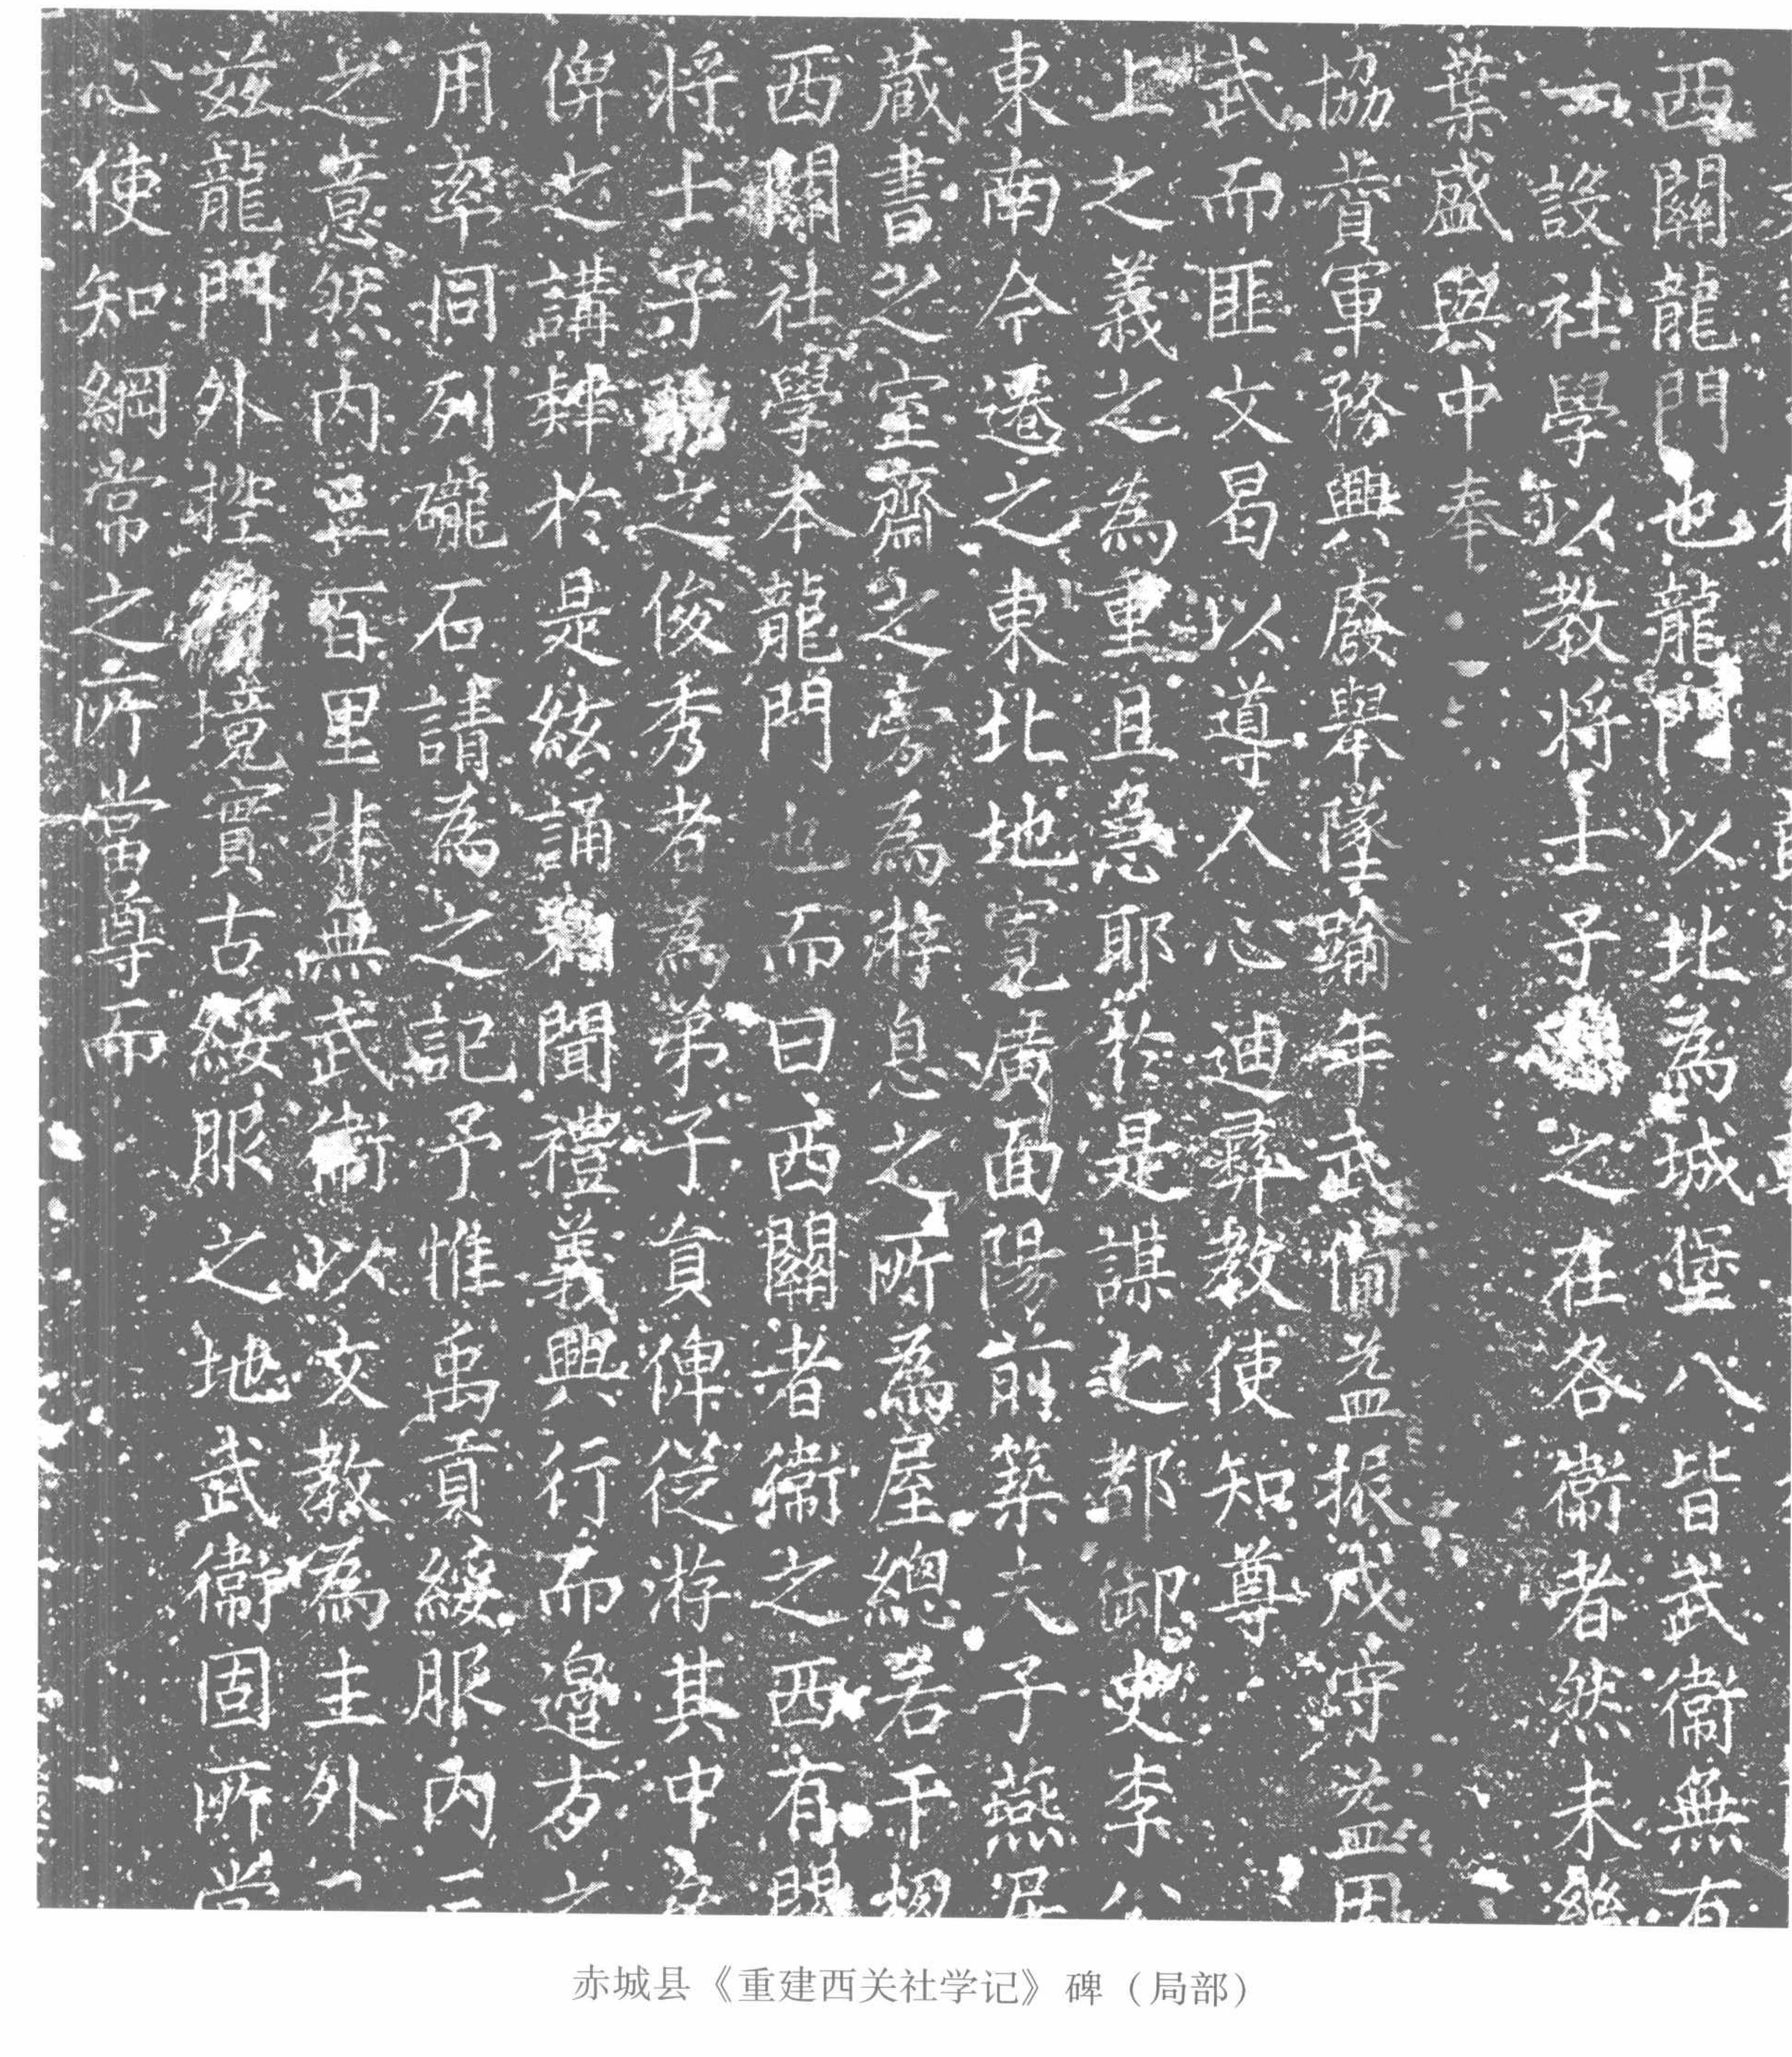 西關龍門也龍門以北為城堡八皆武衞無有
一設社學以教將士子之在各衞者然未
葉盛與中奉
協賛軍務興廢舉墜踰年武備益振戍守益固
武而匪文曷以導人心迪彛教使知尊
上之義之為重且急耶於是謀之都御史李公
東南今遷之東北地寛廣面陽前築夫子燕居
藏書之室齋之旁為游息之所為屋總若干楹
西關社學本龍門也而曰西關者衞之西有關
將士子之俊秀者為弟子負俾從游其中
俾之講肄於是絃誦聞禮義興行而邉方之
用率同列礲石請為之記予惟禹貢綏服内三
之意然内三百里非無武衞以文教為主外二
兹龍門外控境實古綏服之地武衞固所當
心使知綱常之所當尊而
赤城县《重建西关社学记》碑（局部）